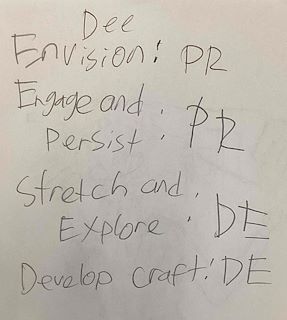 Dee
Envision: PR
Engage and
Persist : PR
Stretch and
Explore : DE
Develop craft: DE